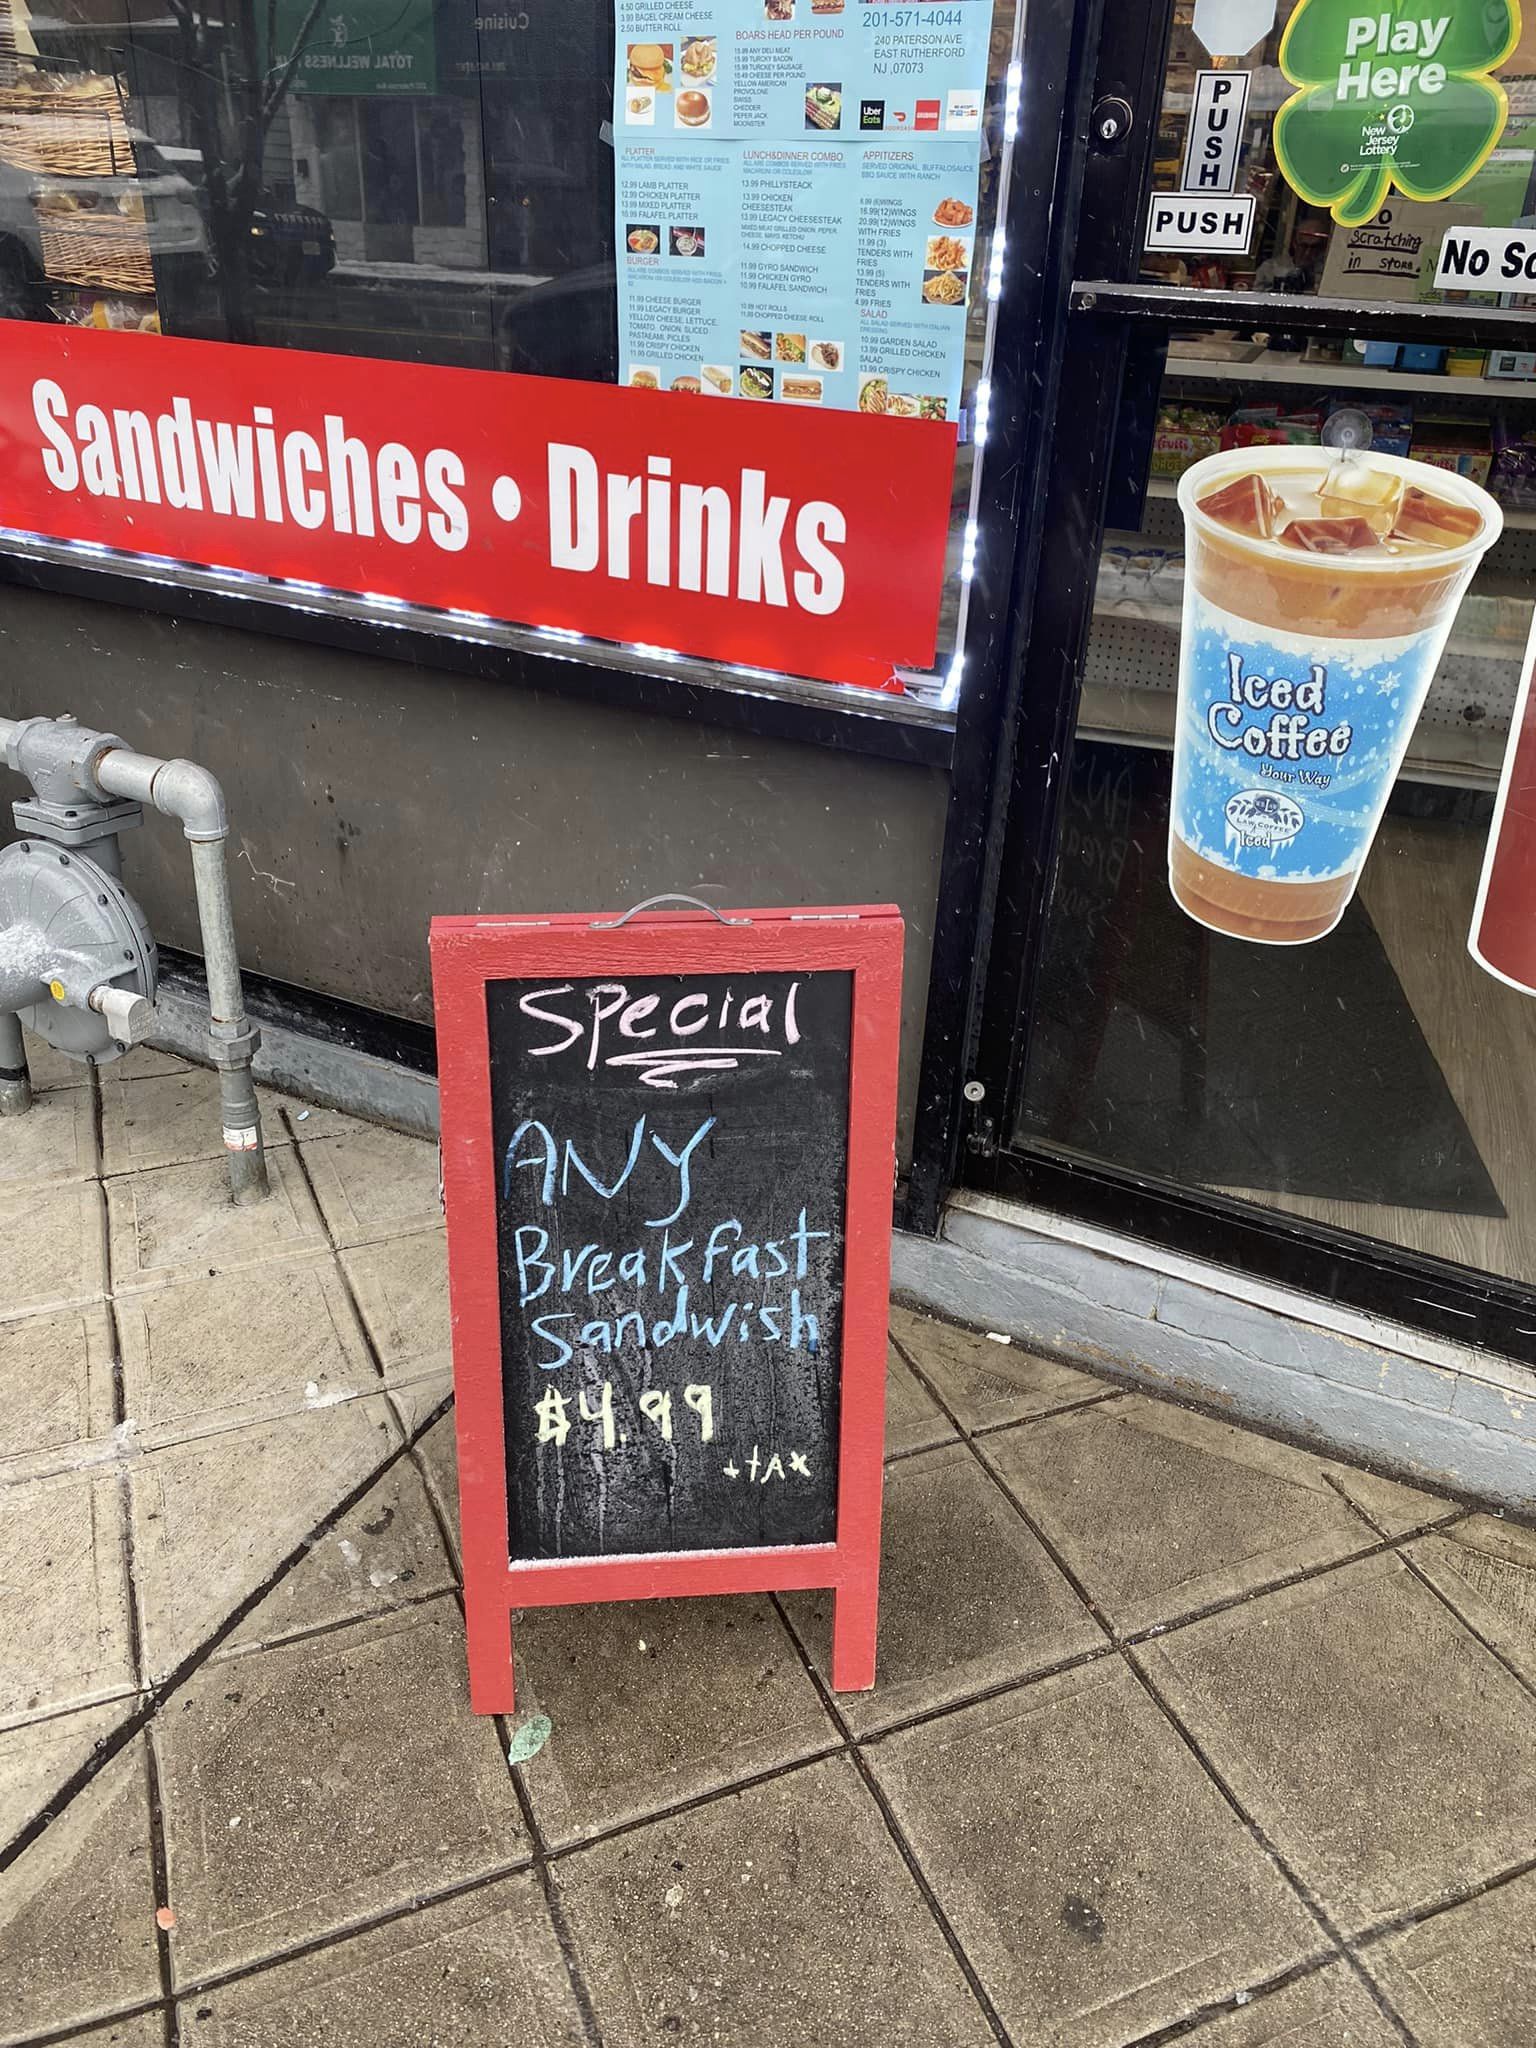 4.50 GRILLED CHEESE
3.99 BAGEL CREAM CHEESE
2.50 BUTTER ROLL
BOARS HEAD PER POUND
15.99 ANY DELI MEAT
15.99 TURCKY BACON
15.99 TURCKEY SAUSAGE
10.49 CHEESE PER POUND
YELLOW AMERICAN
PROVOLONE
SWISS
CHEDDER
PEPER JACK
MOONSTER
201-571-4044
240 PATERSON AVE
EAST RUTHERFORD
NJ ,07073
Uber
Eats
DOORDASH
GRUBHUB
PLATTER
ALL PLATTER SERVED WITH RICE OR FRIES
WITH SALAD, BREAD, AND WHITE SAUCE
12.99 LAMB PLATTER
12.99 CHICKEN PLATTER
13.99 MIXED PLATTER
10.99 FALAFEL PLATTER
BURGER
11.99 CHEESE BURGER
11.99 LEGACY BURGER
YELLOW CHEESE, LETTUCE,
TOMATO, ONION, SLICED
PASTAEAMI, PICLES
11.99 CRISPY CHICKEN
11.99 GRILLED CHICKEN
LUNCH&DINNER COMBO
ALL ARE COMBOS SERVED WITH FRIES
MACARONI OR COLESLOW
13.99 PHILLYSTEACK
13.99 CHICKEN
CHEESESTEAK
13.99 LEGACY CHEESESTEAK
MIXED MEAT GRILLED ONION, PEPER,
CHEESE, MAYO, KETCHU
14.99 CHOPPED CHEESE
11.99 GYRO SANDWICH
11.99 CHICKEN GYRO
10.99 FALAFEL SANDWICH
10.99 HOT ROLLS
11.99 CHOPPED CHEESE ROLL
APPITIZERS
SERVED ORIGINAL, BUFFALOSAUCE
BBQ SAUCE WITH RANCH
8.99 (6)WINGS
16.99(12)WINGS
20.99(12)WINGS
WITH FRIES
11.99 (3)
TENDERS WITH
FRIES
13.99 (5)
TENDERS WITH
FRIES
4.99 FRIES
SALAD
ALL SALAD SERVED WITH ITALIAN
DRESSING
10.99 GARDEN SALAD
13.99 GRILLED CHICKEN
SALAD
13.99 CRISPY CHICKEN
Cuisine
TOTAL WELLNESS
Sandwiches • Drinks
PUSH
PUSH
Play
Here
New
Jersey
Lottery
Scratching
in store.
No Sc
Iced
Coffee
Your Way
LAW COFFEE
Iced
Special
ANY
Breakfast
Sandwish
$4.99
+tAx